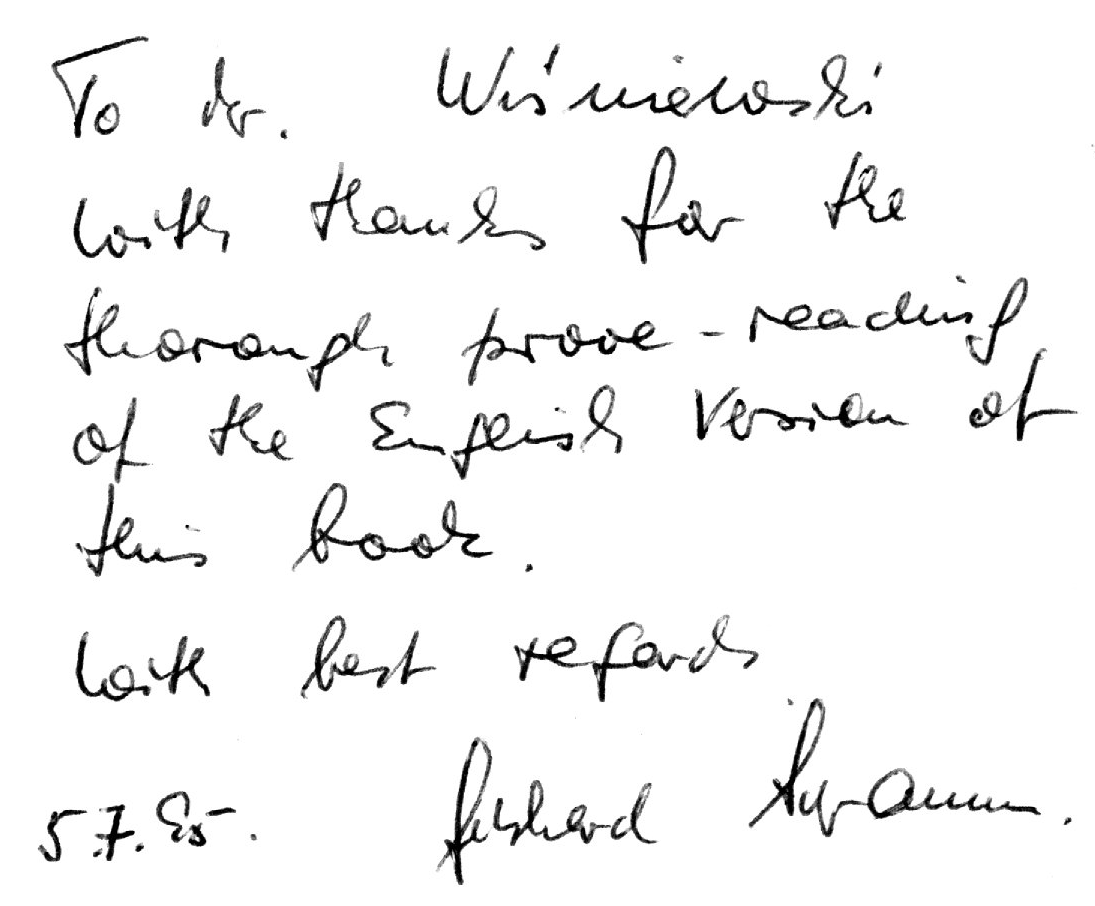 To dr. Wiśniewski
with thanks for the
thorough prove-reading
of the English version of
this book.
with best regards
5.7.85. Gebhard